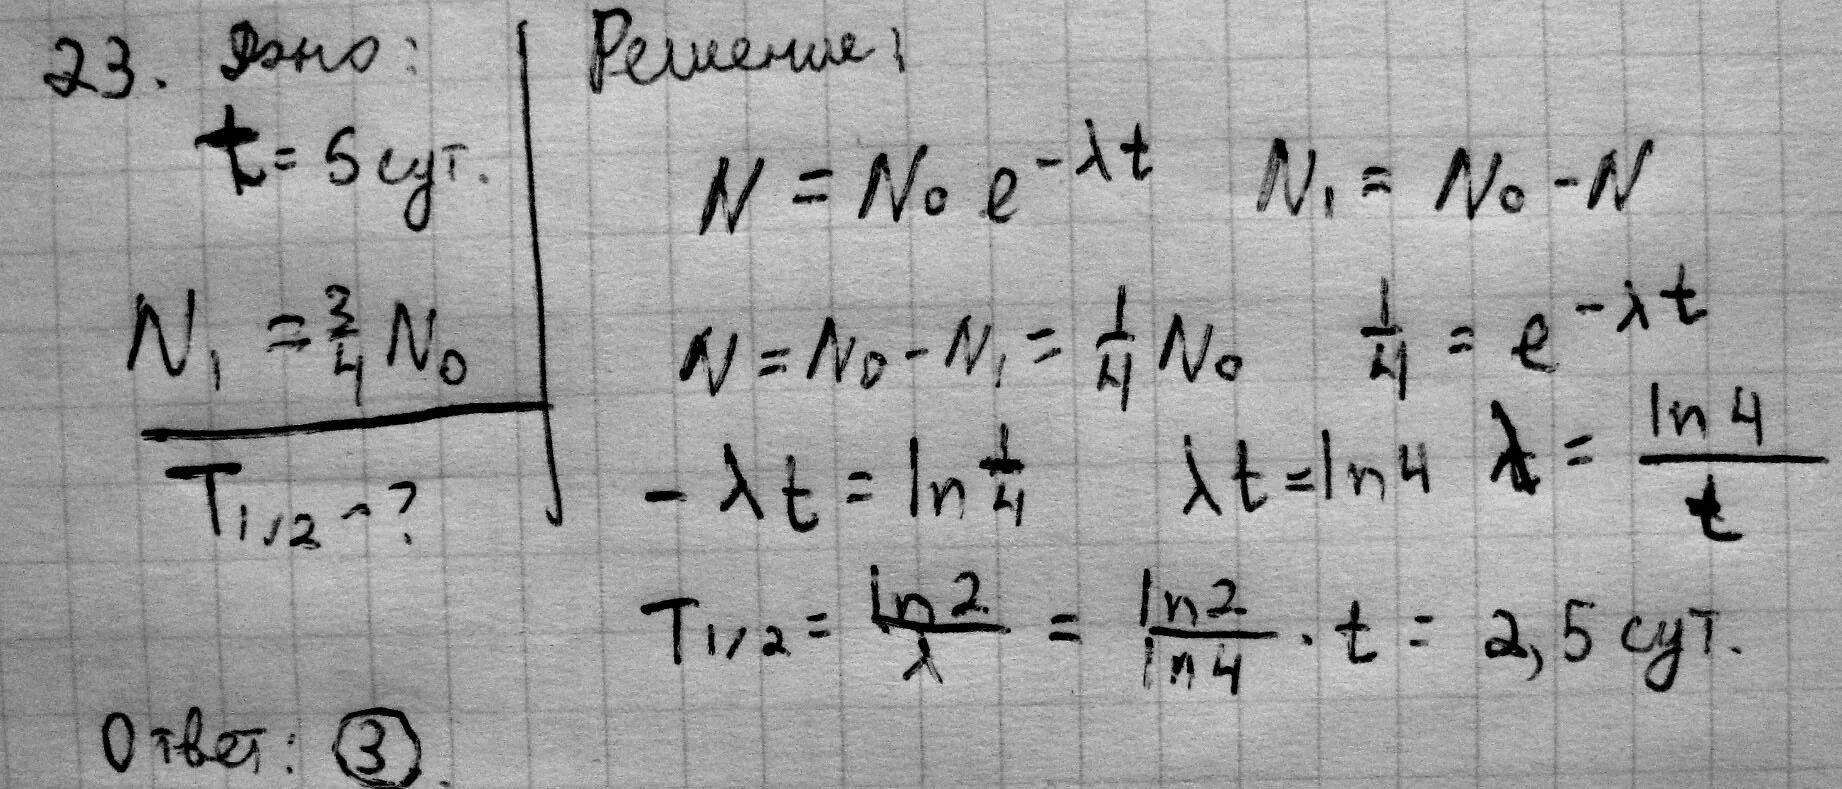 23. Дано:
t = 5 сут.
N₁ = 3/4 N₀
T₁/₂ - ?
Решение:
N = N₀ e^(-λt) N₁ = N₀ - N
N = N₀ - N₁ = 1/4 N₀ 1/4 = e^(-λt)
- λt = ln 1/4 λt = ln4 λ = ln 4 / t
T₁/₂ = ln 2 / λ = ln2 / ln4 · t = 2,5 сут.
Ответ: 3.